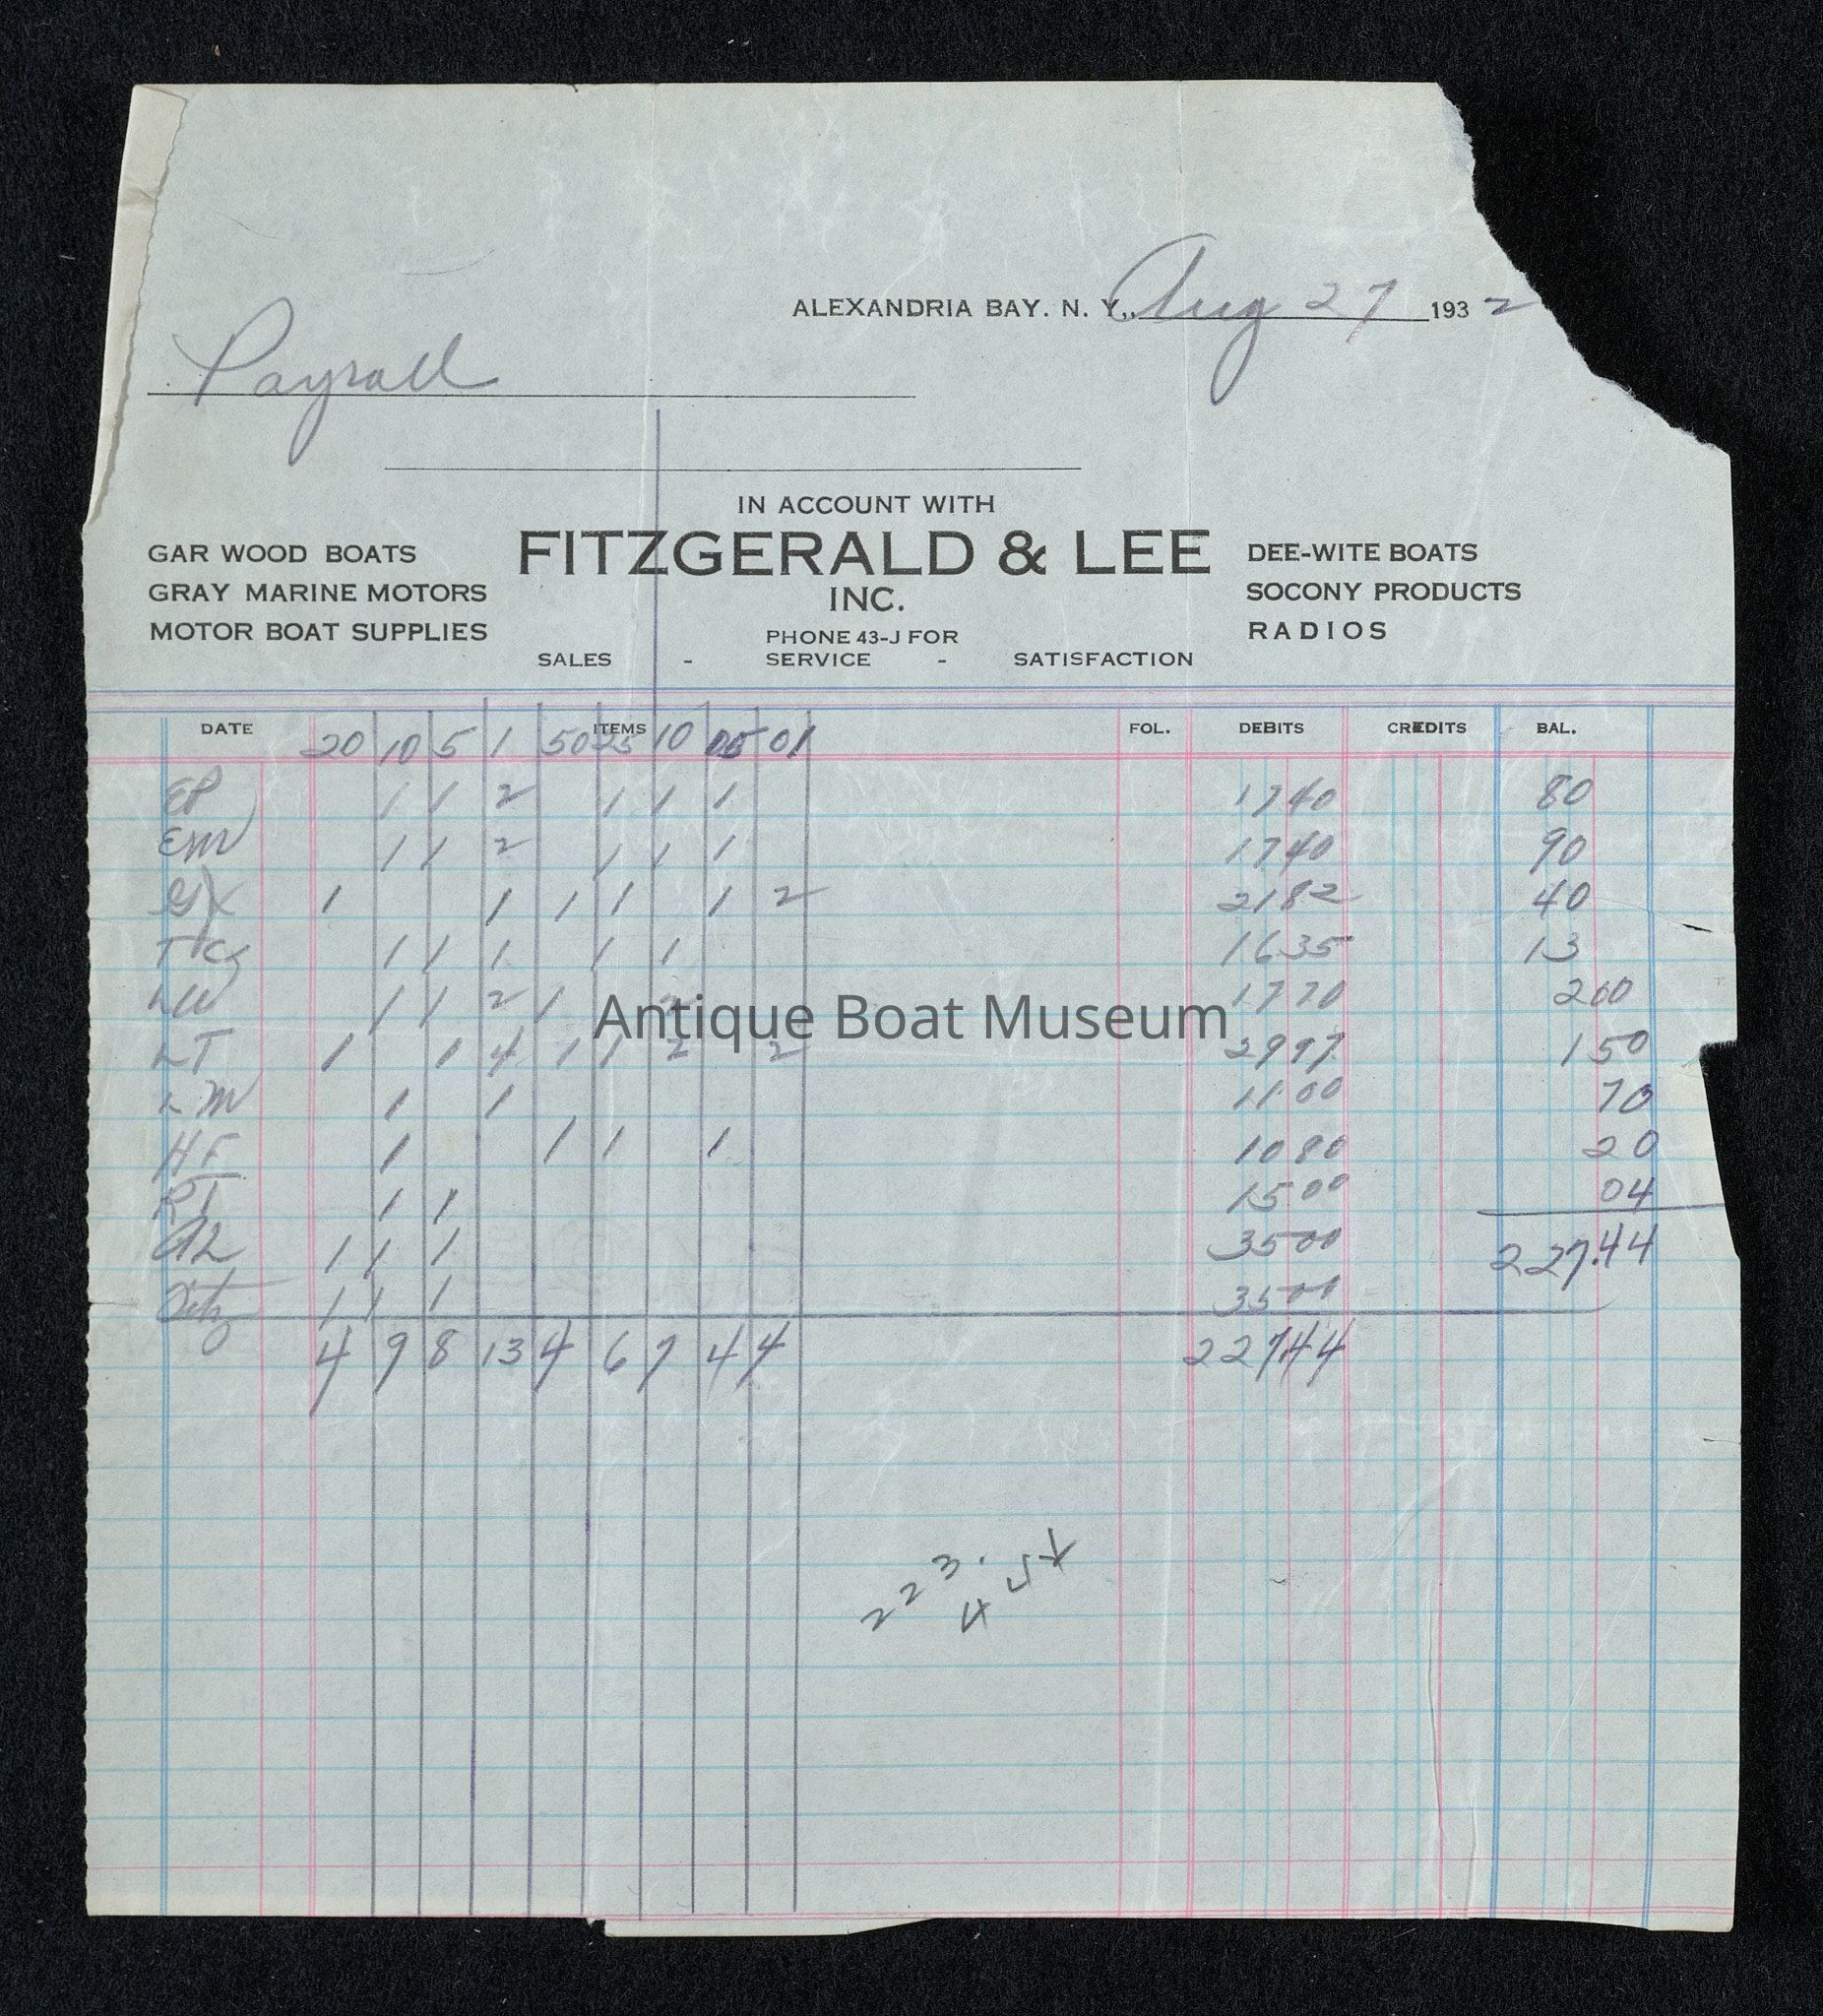 ALEXANDRIA BAY. N. Y., Aug 27 1932
Payroll
IN ACCOUNT WITH
FITZGERALD & LEE
INC.
GAR WOOD BOATS
GRAY MARINE MOTORS
MOTOR BOAT SUPPLIES
DEE-WITE BOATS
SOCONY PRODUCTS
RADIOS
PHONE 43-J FOR
SALES - SERVICE - SATISFACTION
DATE ITEMS FOL. DEBITS CREDITS BAL.
20 10 5 1 50 25 10 05 01
EP 1 1 2 1 1 1 1740 80
EM 1 1 2 1 1 1 1740 90
1 1 1 1 1 2 2182 40
1 1 1 1 1 1635 13
LW 1 1 2 1 2 1770 200
Antique Boat Museum
LT 1 1 4 1 1 2 2 2997 150
LM 1 1 1100 70
HF 1 1 1 1 1080 20
RT 1 1 1500 04
AL 1 1 1 3500 227.44
Fitz 1 1 1 3500
4 9 8 13 4 6 7 4 4 22744
223.